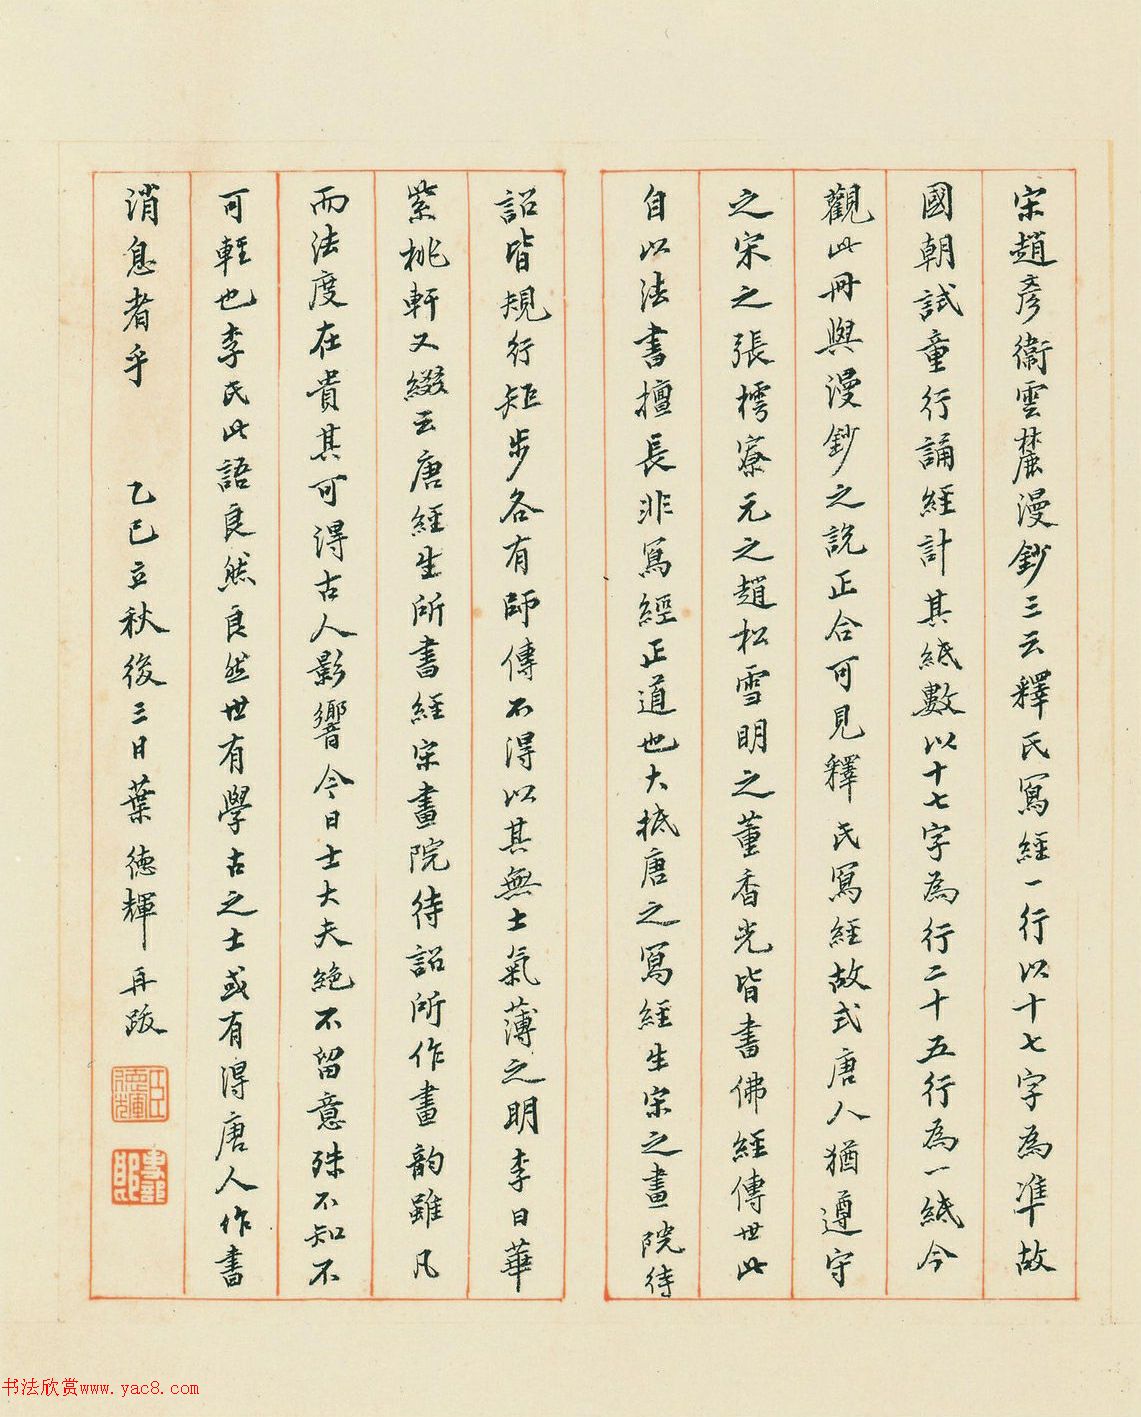 宋趙彥衛雲麓漫鈔三云釋氏寫經一行以十七字為準故
國朝試童行誦經計其紙數以十七字為行二十五行為一紙今
觀此冊與漫鈔之說正合可見釋氏寫經故式唐人猶遵守
之宋之張樗寮元之趙松雪明之董香光皆書佛經傳世此
自以法書擅長非寫經正道也大抵唐之寫經生宋之畫院待
詔皆規行矩步各有師傳不得以其無士氣薄之明李日華
紫桃軒又綴云唐經生所書經宋畫院待詔所作畫韵雖凡
而法度在貴其可得古人影響今日士大夫絕不留意殊不知不
可輕也李氏此語良然良然世有學古之士或有得唐人作書
消息者乎 乙巳立秋後三日葉德輝再跋
书法欣赏www.yac8.com